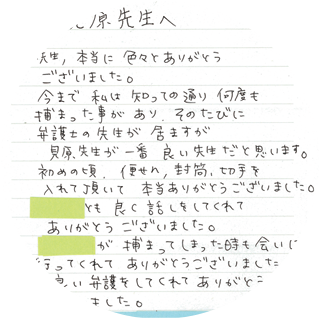 原先生へ
先生、本当に色々とありがとう
ございました。
今まで私は知っての通り何度も
捕まった事があり、そのたびに
弁護士の先生が居ますが
貝原先生が一番良い先生だと思います。
初めの頃、便せん、封筒、切手を
入れて頂いて本当ありがとうございました。
とも良く話しをしてくれて
ありがとうございました。
が捕まってしまった時も会いに
行ってくれてありがとうございました
良い弁護をしてくれてありがと
ました。